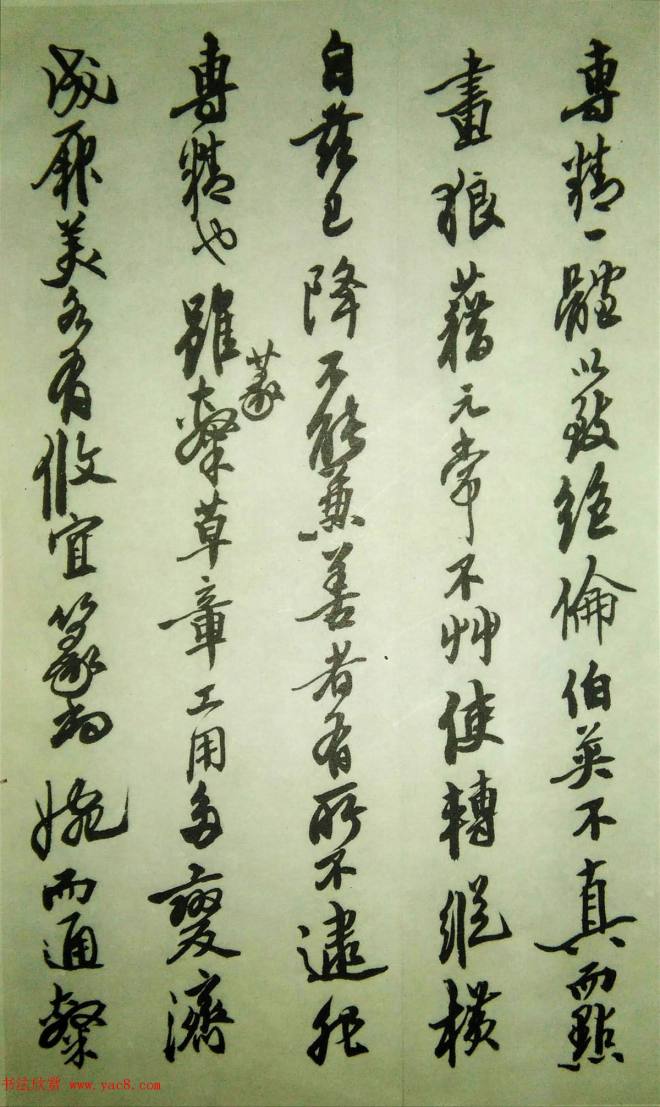 專精一體以致絕倫伯英不真而點
畫狼藉元常不艸使轉縱橫
自茲已降不能兼善者有所不逮非
專精也雖篆隸草章工用多變濟
成厥美各有攸宜篆尚婉而通隸
书法欣赏 www.yac8.com